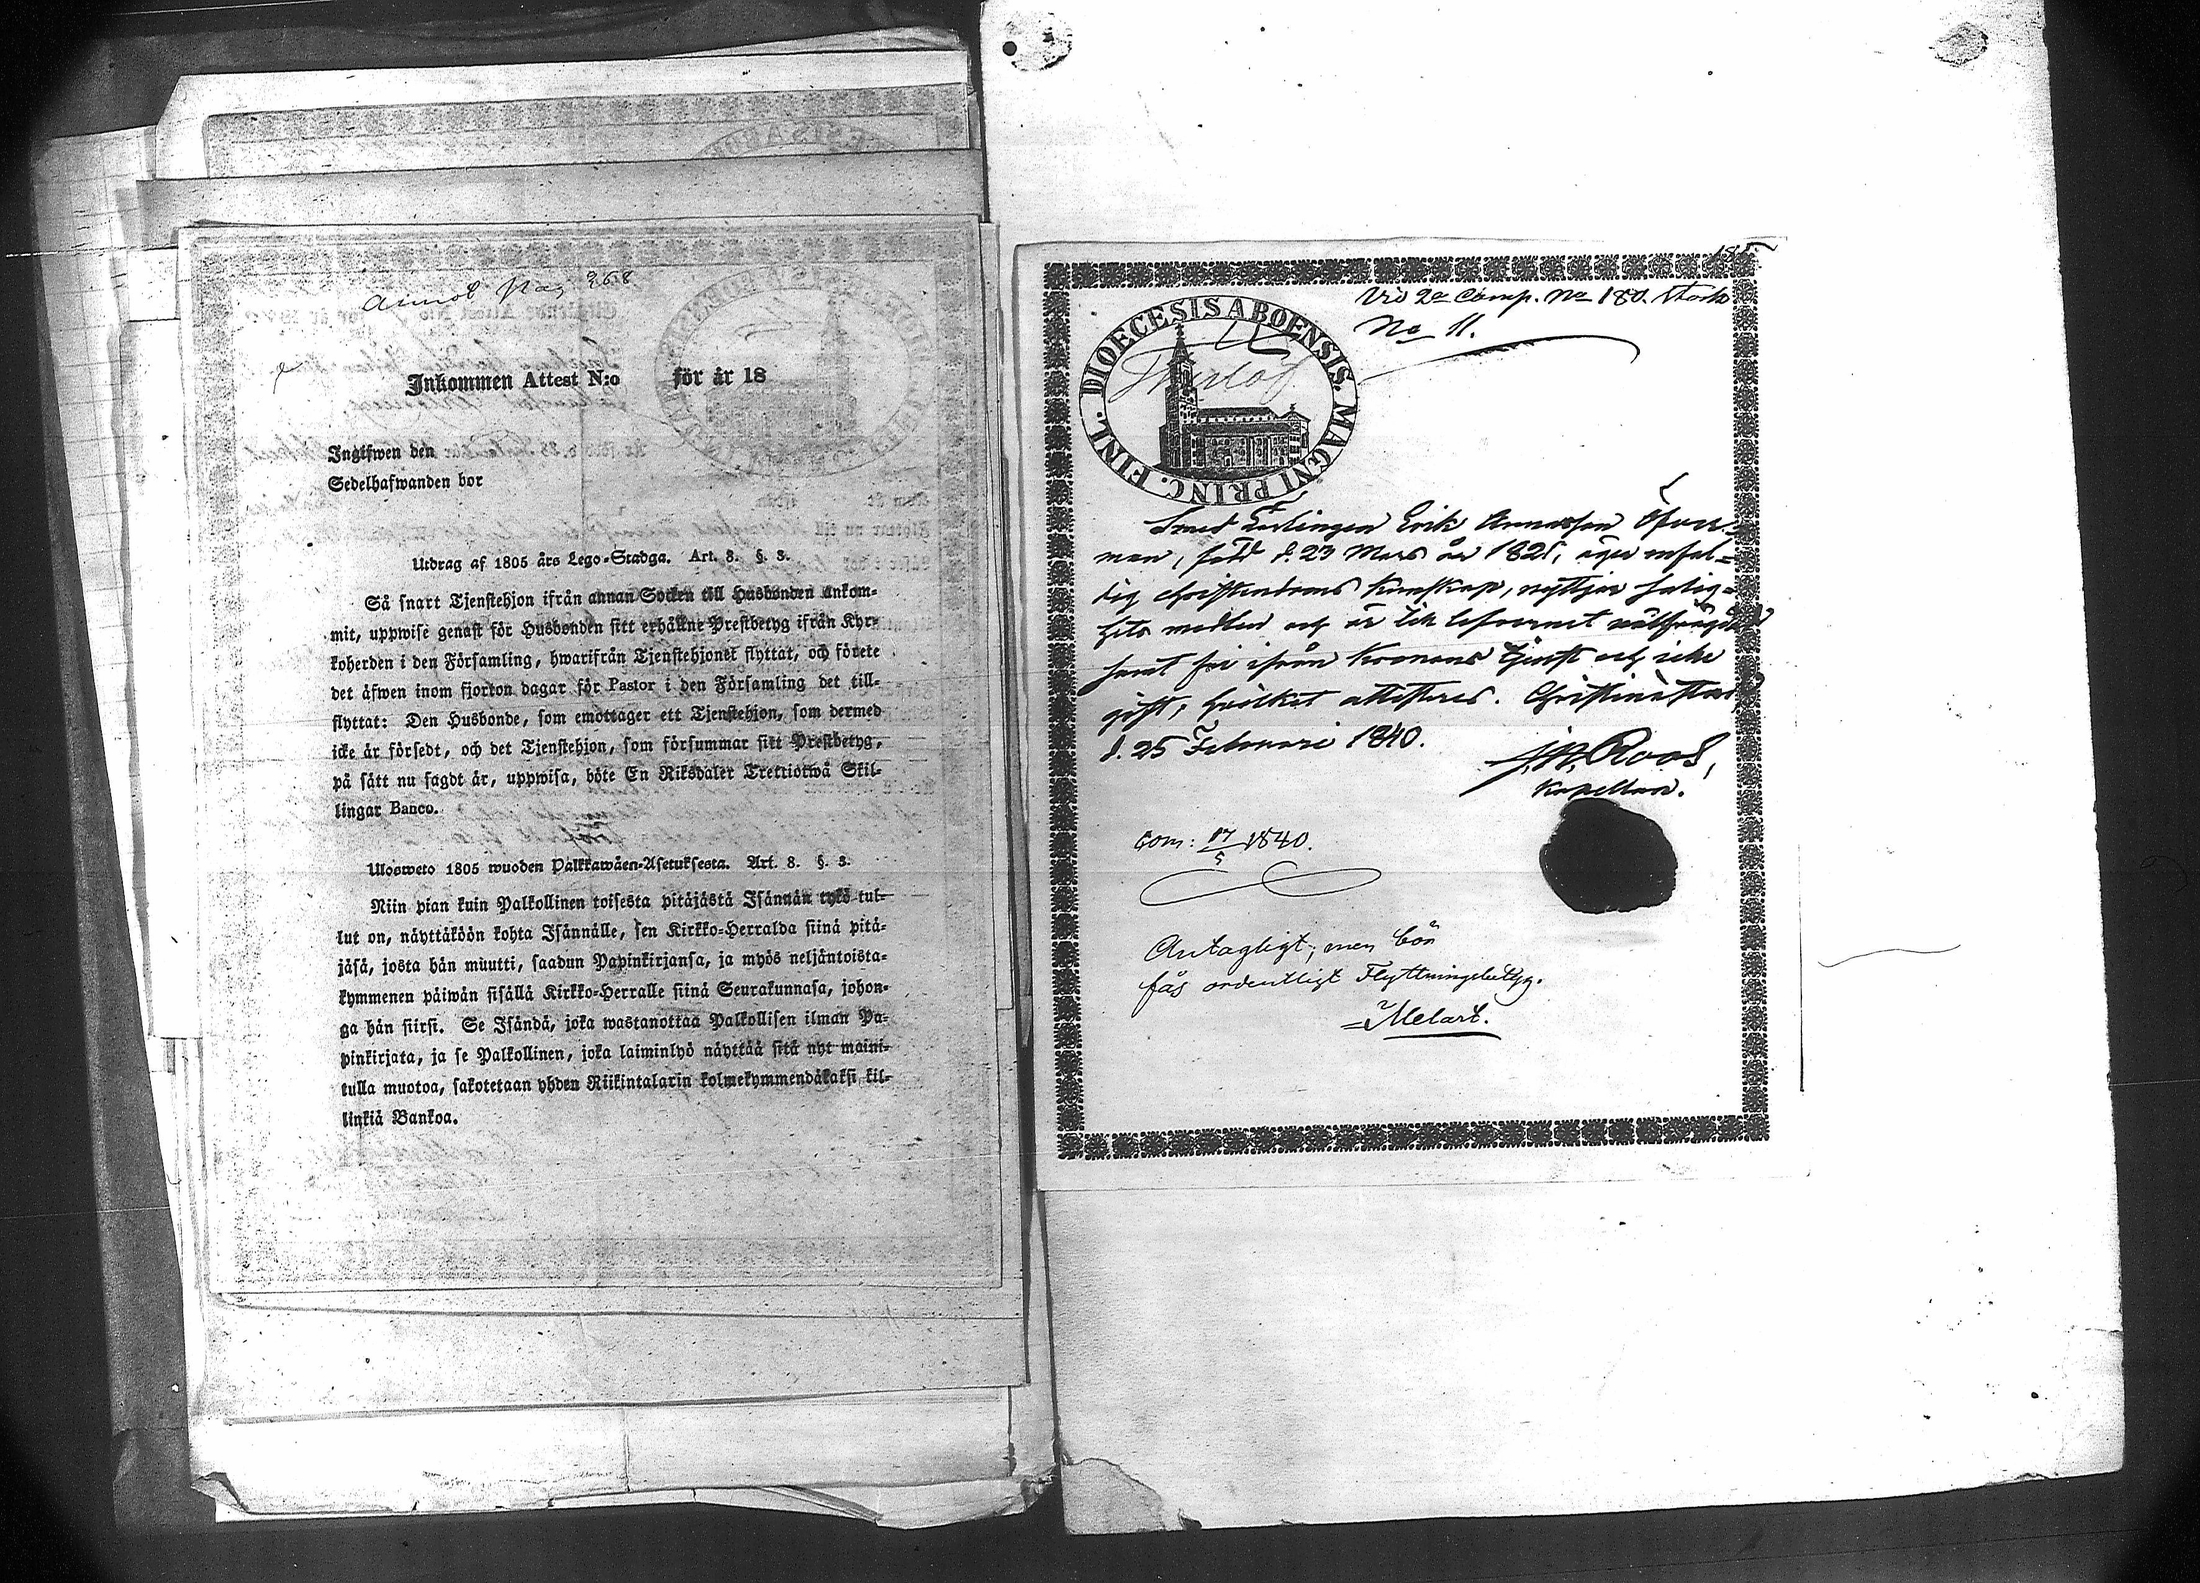 Annot Pag 268
Inkommen Attest N:o för år 18
Ingifwen den
Sedelhafwanden bor
Utdrag af 1805 års Lego-Stadga. Art. 8. §. 3.
Så snart Tjenstehjon ifrån annan Socken till Husbonden ankom-
mit, uppwise genast för Husbonden sitt erhållne Prestbetyg ifrån Kyr-
koherden i den Församling, hwarifrån Tjenstehjonet flyttat, och förete
det äfwen inom fjorton dagar för Pastor i den Församling det till-
flyttat: Den Husbonde, som emottager ett Tjenstehjon, som dermed
icke är försedt, och det Tjenstehjon, som försummar sitt Prestbetyg,
på sätt nu sagdt är, uppwisa, böte En Riksdaler Trettiotwå Skil-
lingar Banco.
Ulosweto 1805 wuoden Palkkawäen-Asetuksesta. Art. 8. §. 3.
Niin pian kuin Palkollinen toisesta pitäjästä Isännän tykö tul-
lut on, näyttäköön kohta Isännälle, sen Kirkko-Herralda siinä pitä-
jäsä, josta hän muutti, saadun Papinkirjansa, ja myös neljäntoista-
kymmenen päiwän sisällä Kirkko-Herralle siinä Seurakunnasa, johon-
ga hän siirsi. Se Isändä, joka wastanottaa Palkollisen ilman Pa-
pinkirjata, ja se Palkollinen, joka laiminlyö näyttää sitä nyt maini-
tulla muotoa, sakotetaan yhden Riikintalarin kolmekymmendäkaksi kil-
linkiä Bankoa.
DIOECESIS ABOENSIS. MAGNI PRINC. FINL.
Vid 2a Comp. No 180. Stork
No 11.
Smed Lärlingen Erik Annasson Öfver-
man, född d. 23 Mars år 1821, äger enfal-
dig christendoms kunskap, nyttjar salig-
hets medlen och är till lefvernet välfrägdad
samt fri ifrån Kronans tjenst och icke
gift, hvilket attesteras. Christinæstad
d. 25 Februari 1840.
J. N. Roos,
Kapellan.
Com: 17/5 1840.
Antagligt, men bör
fås ordentligt Flyttningsbetyg.
Melart.